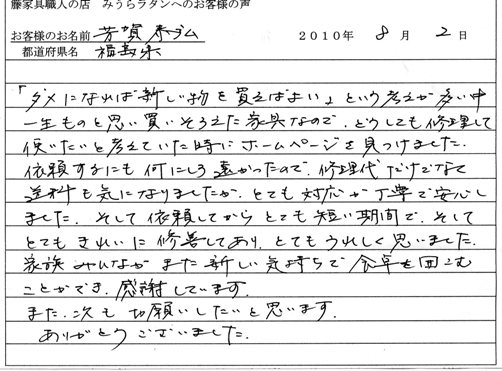 籐家具職人の店　みうらラタンへのお客様の声
お客様のお名前 芳賀
2010年 8月 2日
都道府県名 福島県
「ダメになれば新しい物を買えばよい」という考えが多い中
一生ものと思い買いそろえた家具なので、どうしても修理して
使いたいと考えていた時にホームページを見つけました。
依頼するにも何にしろ遠かったので、修理代だけでなく
送料も気になりましたが、とても対応が丁寧で安心し
ました。そして依頼してからとても短い期間で、そして
とてもきれいに修善してあり、とてもうれしく思いました。
家族みんながまた新しい気持ちで食卓を囲こむ
ことができ、感謝しています。
また、次もお願いしたいと思います。
ありがとうございました。